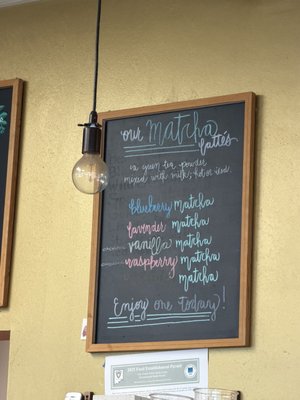 our Matcha
lattés
is green tea powder
mixed with milk; hot or iced.
blueberry matcha
lavender matcha
vanilla matcha
raspberry matcha
matcha
Enjoy one Today!
2023 Food Establishment Permit